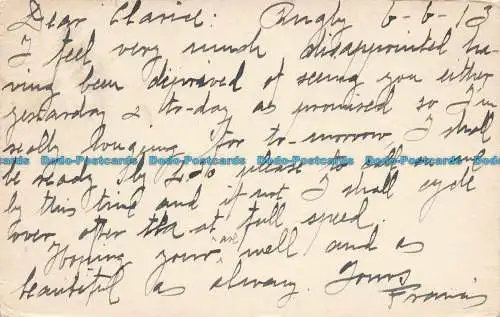 Dear Clarice: Rugby 6-6-13
I feel very much disappointed ha-
ving been deprived of seeing you either
yesterday & to-day as promised so I'm
really longing for to-morrow, I shall
Dodo-Postcards Dodo-Postcards Dodo-Postcards Dodo-Postcards
be ready by please to call
by this time and if not I shall cycle
over after tea at full speed.
Hoping your are well and as
beautiful as always. Yours
Francis